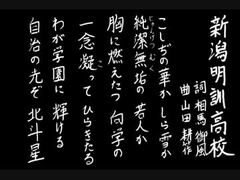 新潟明訓高校
詞 相馬御風
曲 山田耕筰
こしぢの華か しら雪か
純潔無垢の 若人が
胸に燃えたつ 向学の
一念凝って ひらきたる
わが学園に 輝ける
自治の光ぞ 北斗星